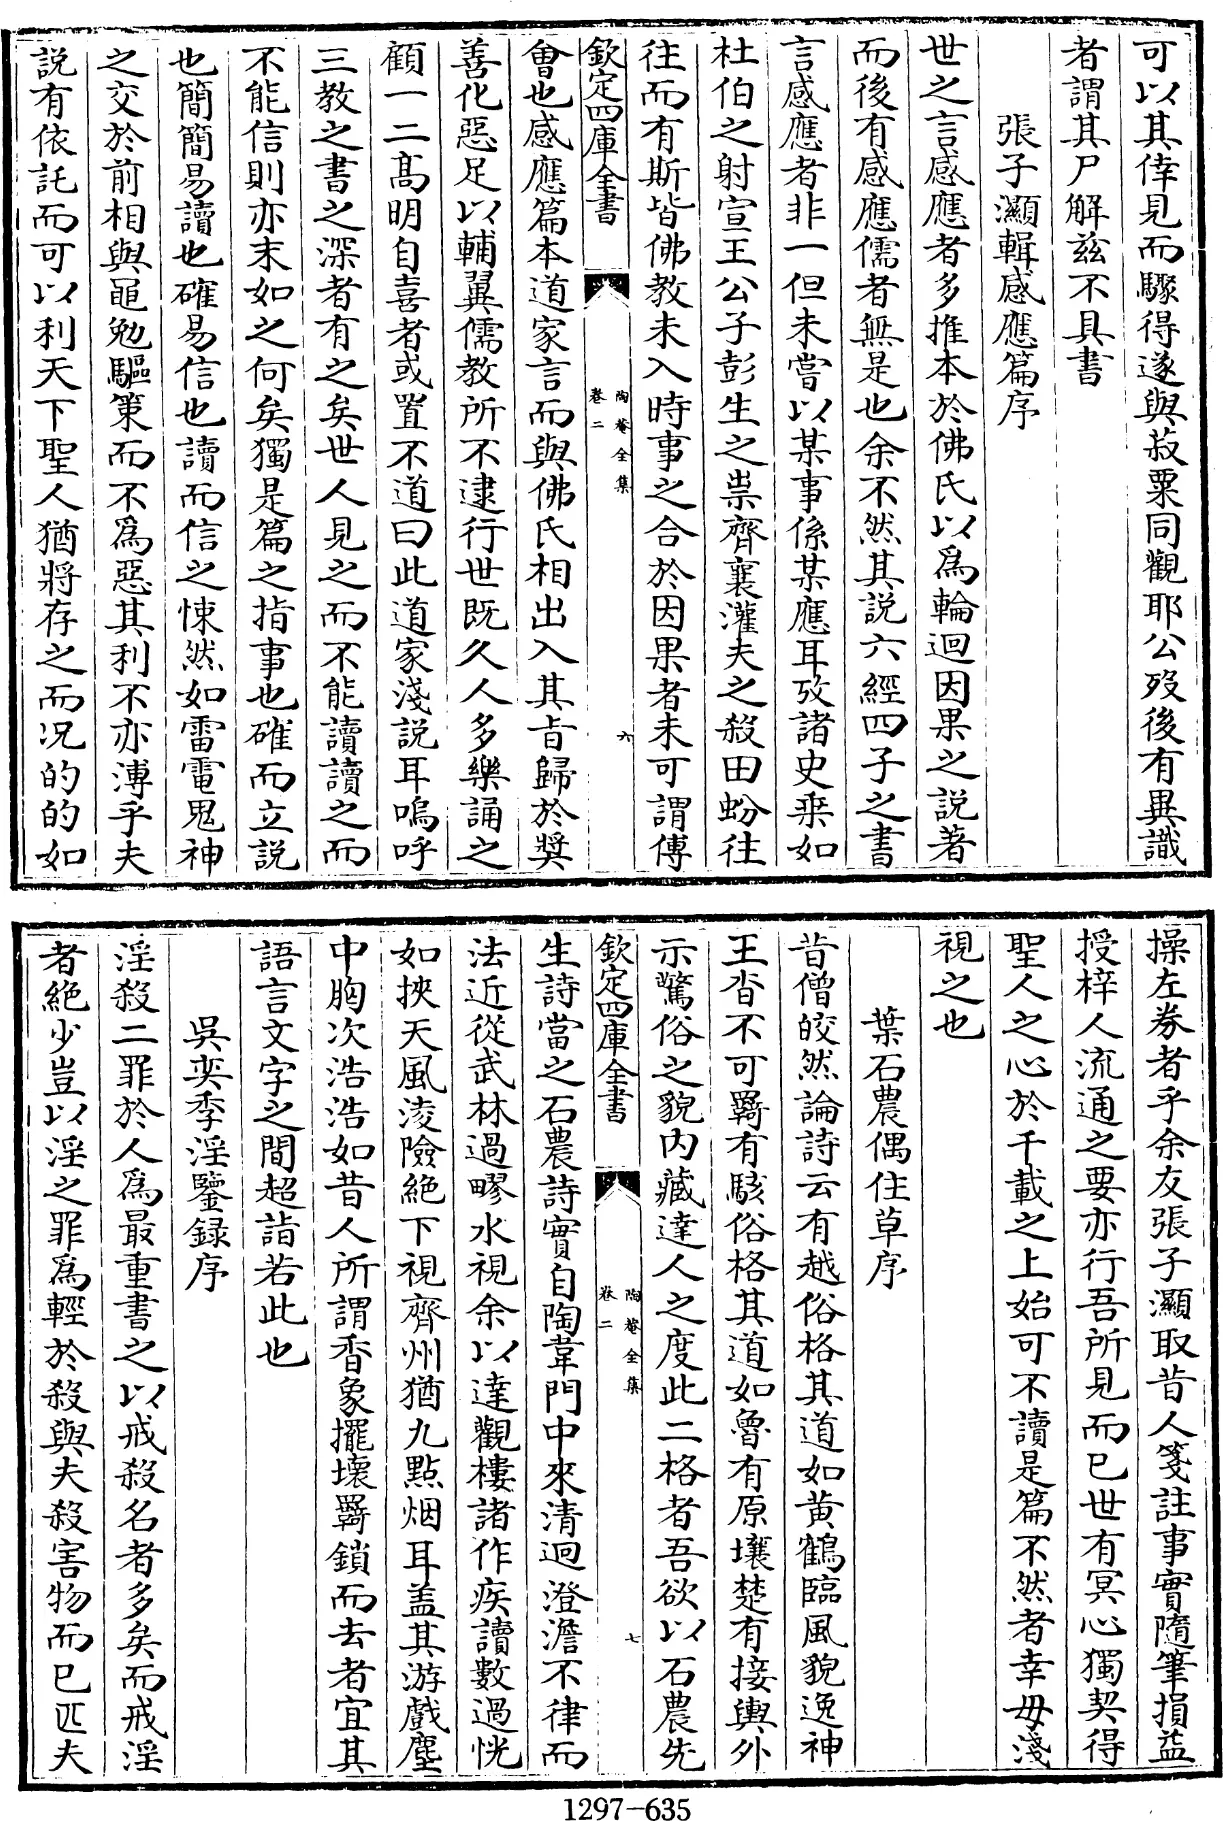 可以其倖見而驟得遂與菽粟同觀耶公歿後有異識
者謂其尸解兹不具書
張子灝輯感應篇序
世之言感應者多推本於佛氏以為輪迴因果之説著
而後有感應儒者無是也余不然其説六經四子之書
言感應者非一但未嘗以某事係某應耳攷諸史乗如
杜伯之射宣王公子彭生之祟齊襄灌夫之殺田蚡往
往而有斯皆佛教未入時事之合於因果者未可謂傅
欽定四庫全書
陶菴全集
卷二
六
會也感應篇本道家言而與佛氏相出入其㫖歸於奬
善化惡足以輔翼儒教所不逮行世既久人多樂誦之
顧一二髙明自喜者或置不道曰此道家淺説耳嗚呼
三教之書之深者有之矣世人見之而不能讀讀之而
不能信則亦末如之何矣獨是篇之指事也確而立説
也簡簡易讀也確易信也讀而信之悚然如雷電鬼神
之交於前相與黽勉驅策而不為惡其利不亦溥乎夫
説有依託而可以利天下聖人猶將存之而况的的如
操左劵者乎余友張子灝取昔人箋註事實隨筆損益
授梓人流通之要亦行吾所見而已世有冥心獨契得
聖人之心於千載之上始可不讀是篇不然者幸毋淺
視之也
葉石農偶住草序
昔僧皎然論詩云有越俗格其道如黄鶴臨風貌逸神
王杳不可羇有駭俗格其道如魯有原壤楚有接輿外
示驚俗之貌内藏達人之度此二格者吾欲以石農先
欽定四庫全書
陶菴全集
卷二
七
生詩當之石農詩實自陶韋門中來清迥澄澹不律而
法近從武林過疁水視余以達觀樓諸作疾讀數過恍
如挾天風淩險絶下視齊州猶九點烟耳盖其游戲塵
中胸次浩浩如昔人所謂香象擺壞羇鎖而去者宜其
語言文字之間超詣若此也
吳奕季淫鑒録序
淫殺二罪於人為最重書之以戒殺名者多矣而戒淫
者絶少豈以淫之罪為輕於殺與夫殺害物而已匹夫
1297-635